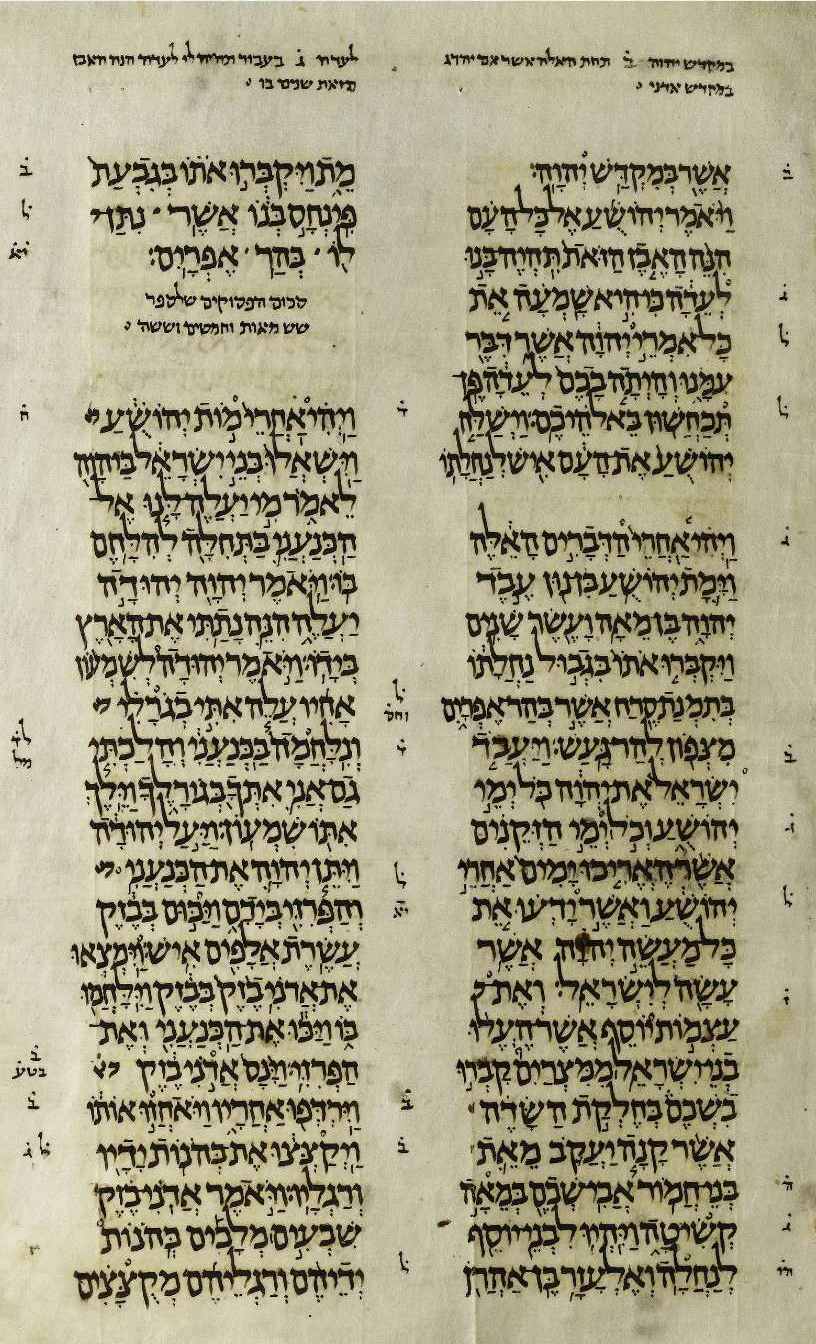 במקדש יהוה ב תחת האלה אשר אם יהרג
במקדש אדני
אֲשֶׁר בְּמִקְדַּשׁ יְהוָה׃
וַיֹּאמֶר יְהוֹשֻׁעַ אֶל כָּל הָעָם
הִנֵּה הָאֶבֶן הַזֹּאת תִּהְיֶה בָּנוּ
לְעֵדָה כִּי הִיא שָׁמְעָה אֵת
כָּל אִמְרֵי יְהוָה אֲשֶׁר דִּבֶּר
עִמָּנוּ וְהָיְתָה בָכֶם לְעֵדָה פֶּן
תְּכַחֲשׁוּן בֵּאלֹהֵיכֶם׃ וַיְשַׁלַּח
יְהוֹשֻׁעַ אֶת הָעָם אִישׁ לְנַחֲלָתוֹ
וַיְהִי אַחֲרֵי הַדְּבָרִים הָאֵלֶּה
וַיָּמָת יְהוֹשֻׁעַ בִּן נוּן עֶבֶד
יְהוָה בֶּן מֵאָה וָעֶשֶׂר שָׁנִים
וַיִּקְבְּרוּ אֹתוֹ בִּגְבוּל נַחֲלָתוֹ
בְּתִמְנַת סֶרַח אֲשֶׁר בְּהַר אֶפְרָיִם
מִצְּפוֹן לְהַר גָּעַשׁ׃ וַיַּעֲבֹד
יִשְׂרָאֵל אֶת יְהוָה כֹּל יְמֵי
יְהוֹשֻׁעַ וְכֹל יְמֵי הַזְּקֵנִים
אֲשֶׁר הֶאֱרִיכוּ יָמִים אַחֲרֵי
יְהוֹשֻׁעַ וַאֲשֶׁר יָדְעוּ אֵת
כָּל מַעֲשֵׂה יְהוָה אֲשֶׁר
עָשָׂה לְיִשְׂרָאֵל׃ וְאֶת
עַצְמוֹת יוֹסֵף אֲשֶׁר הֶעֱלוּ
בְנֵי יִשְׂרָאֵל מִמִּצְרַיִם קָבְרוּ
בִשְׁכֶם בְּחֶלְקַת הַשָּׂדֶה
אֲשֶׁר קָנָה יַעֲקֹב מֵאֵת
בְּנֵי חֲמוֹר אֲבִי שְׁכֶם בְּמֵאָה
קְשִׂיטָה וַיִּהְיוּ לִבְנֵי יוֹסֵף
לְנַחֲלָה׃ וְאֶלְעָזָר בֶּן אַהֲרֹן
לעדה ג בעבור תהיה לי לעדה הנה האבן
הזאת שנים בו
מֵת וַיִּקְבְּרוּ אֹתוֹ בְּגִבְעַת
פִּינְחָס בְּנוֹ אֲשֶׁר נִתַּן
לוֹ בְּהַר אֶפְרָיִם׃
סכום הפסוקים שלספר
שש מאות וחמשים וששה
וַיְהִי אַחֲרֵי מוֹת יְהוֹשֻׁעַ
וַיִּשְׁאֲלוּ בְּנֵי יִשְׂרָאֵל בַּיהוָה
לֵאמֹר מִי יַעֲלֶה לָּנוּ אֶל
הַכְּנַעֲנִי בַּתְּחִלָּה לְהִלָּחֶם
בּוֹ׃ וַיֹּאמֶר יְהוָה יְהוּדָה
יַעֲלֶה הִנֵּה נָתַתִּי אֶת הָאָרֶץ
בְּיָדוֹ׃ וַיֹּאמֶר יְהוּדָה לְשִׁמְעוֹן
אָחִיו עֲלֵה אִתִּי בְגֹרָלִי
וְנִלָּחֲמָה בַּכְּנַעֲנִי וְהָלַכְתִּי
גַם אֲנִי אִתְּךָ בְּגוֹרָלֶךָ וַיֵּלֶךְ
אִתּוֹ שִׁמְעוֹן׃ וַיַּעַל יְהוּדָה
וַיִּתֵּן יְהוָה אֶת הַכְּנַעֲנִי
וְהַפְּרִזִּי בְּיָדָם וַיַּכּוּם בְּבֶזֶק
עֲשֶׂרֶת אֲלָפִים אִישׁ׃ וַיִּמְצְאוּ
אֶת אֲדֹנִי בֶזֶק בְּבֶזֶק וַיִּלָּחֲמוּ
בּוֹ וַיַּכּוּ אֶת הַכְּנַעֲנִי וְאֶת
הַפְּרִזִּי׃ וַיָּנָס אֲדֹנִי בֶזֶק
וַיִּרְדְּפוּ אַחֲרָיו וַיֹּאחֲזוּ אוֹתוֹ
וַיְקַצְּצוּ אֶת בְּהֹנוֹת יָדָיו
וְרַגְלָיו׃ וַיֹּאמֶר אֲדֹנִי בֶזֶק
שִׁבְעִים מְלָכִים בְּהֹנוֹת
יְדֵיהֶם וְרַגְלֵיהֶם מְקֻצָּצִים